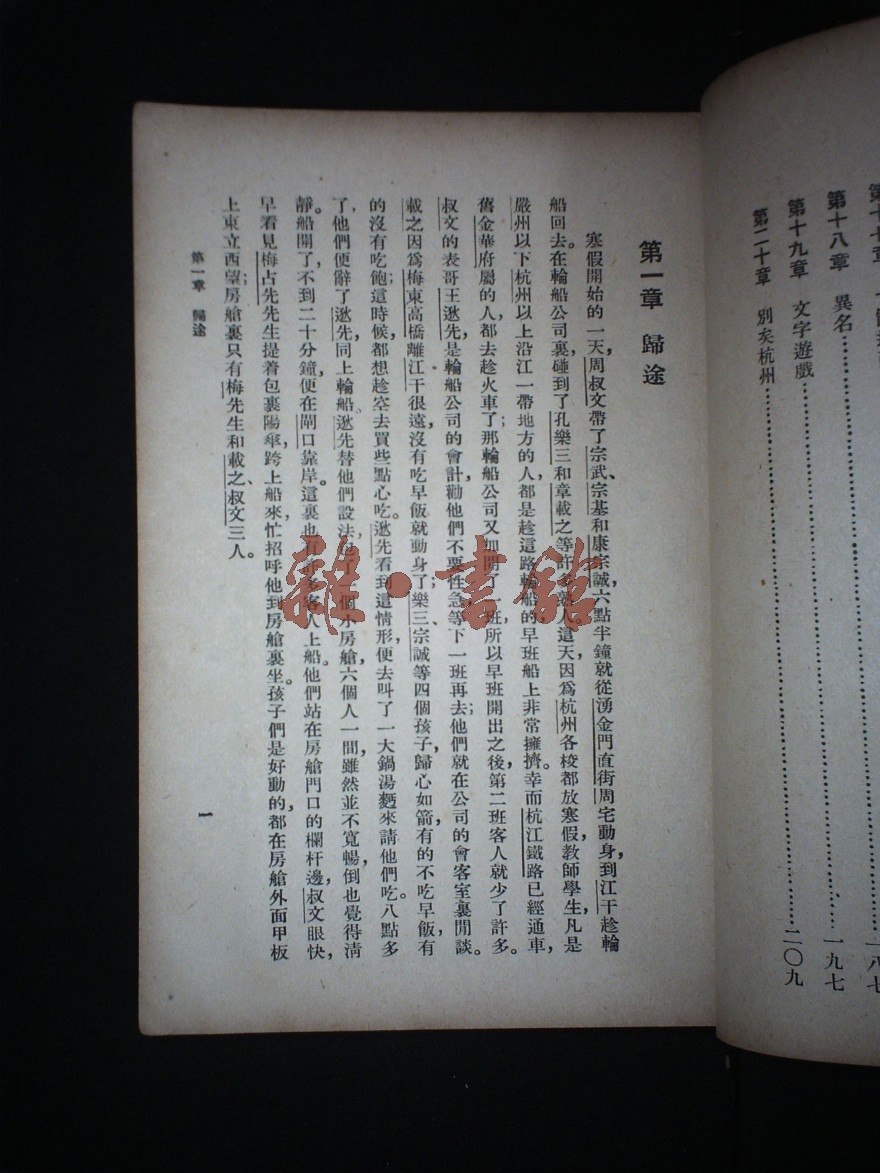 第十八章　異名……一九七
第十九章　文字遊戲
第二十章　別矣杭州……二〇九
第一章　歸途
寒假開始的一天，周叔文帶了宗武、宗基和康宗誠，六點半鐘就從湧金門直街周宅動身，到江干趁輪
船回去。在輪船公司裏，碰到了孔樂三和章載之等許多熟人。這天因爲杭州各校都放寒假，教師學生，凡是
嚴州以下杭州以上沿江一帶地方的人，都是趁這路輪船的，早班船上非常擁擠。幸而杭江鐵路已經通車，
舊金華府屬的人，都去趁火車了；那輪船公司又加開了一班，所以早班開出之後，第二班客人就少了許多。
叔文的表哥王逖先，是輪船公司的會計，勸他們不要性急，等下一班再去；他們就在公司的會客室裏閒談。
載之因爲梅東高橋離江干很遠，沒有吃早飯就動身了；樂三、宗誠等四個孩子，歸心如箭，有的不吃早飯，有
的沒有吃飽；這時候都想趁空去買些點心吃。逖先看到這情形，便去叫了一大鍋湯麵來請他們吃。八點多
了，他們便辭了逖先，同上輪船。逖先替他們設法包了一個小房艙，六個人一間，雖然並不寬暢，倒也覺得淸
靜。船開了，不到二十分鐘，便在閘口靠岸。這裏也有許多客人上船。他們站在房艙門口的欄杆邊，叔文眼快，
早看見梅占先先生提着包裹陽傘，跨上船來，忙招呼他到房艙裏坐。孩子們是好動的，都在房艙外面甲板
上東立西望；房艙裏只有梅先生和載之、叔文三人。
第一章　歸途
一
雜·書館